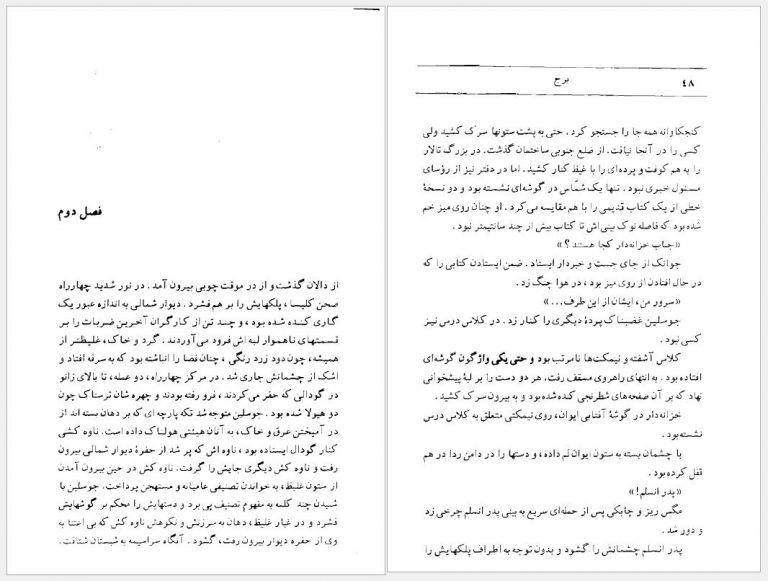 ٤٨
برج
کنجکاوانه همه جا را جستجو کرد. حتی به پشت ستونها سرک کشید ولی
کسی را در آنجا نیافت. از ضلع جنوبی ساختمان گذشت. در بزرگ تالار
را به هم کوفت و پرده‌ای را با غیظ کنار کشید. اما در دفتر نیز از رؤسای
مسئول خبری نبود. تنها یک شمّاس در گوشه‌ای نشسته بود و دو نسخهٔ
خطی از یک کتاب قدیمی را با هم مقایسه می‌کرد. او چنان روی میز خم
شده بود که فاصله نوک بینی‌اش تا کتاب بیش از چند سانتیمتر نبود.
«جناب خزانه‌دار کجا هستند؟»
جوانک از جای جست و خبردار ایستاد. ضمن ایستادن کتابی را که
در حال افتادن از روی میز بود، در هوا چنگ زد.
«سرور من، ایشان از این طرف...»
جوسلین غضبناک پردهٔ دیگری را کنار زد. در کلاس درس نیز
کسی نبود.
کلاس آشفته و نیمکت‌ها نامرتب بود و حتی یکی واژگون گوشه‌ای
افتاده بود. به انتهای راهروی مسقف رفت. هر دو دست را بر لبهٔ پیشخوانی
نهاد که بر آن صفحه‌های شطرنجی کنده شده بود و به بیرون سرک کشید.
خزانه‌دار در گوشهٔ آفتابی ایوان، روی نیمکتی متعلق به کلاس درس
نشسته بود.
با چشمان بسته به ستون ایوان لم داده، و دستها را در دامن ردا در هم
قفل کرده بود.
«پدر انسلم!»
مگس ریز و چابکی پس از حمله‌ای سریع به بینی پدر انسلم چرخی زد
و دور شد.
پدر انسلم چشمانش را گشود و بدون توجه به اطراف پلکهایش را
فصل دوم
از دالان گذشت و از در موقت چوبی بیرون آمد. در نور شدید چهارراه
صحن کلیسا، پلکهایش را بر هم فشرد. دیوار شمالی به اندازه عبور یک
گاری کنده شده بود، و چند تن از کارگران آخرین ضربات را بر
قسمتهای ناهموار لبه اش فرود می‌آوردند. گرد و خاک، غلیظتر از
همیشه، چون دود زرد رنگی، چنان فضا را انباشته بود که به سرفه افتاد و
اشک از چشمانش جاری شد. در مرکز چهارراه، دو عمله، تا بالای زانو
در گودالی که حفر می‌کردند، فرو رفته بودند و چهره شان ترسناک چون
دو هیولا شده بود. جوسلین متوجه شد تکه پارچه ای که بر دهان بسته اند از
در آمیختن عرق و خاک، به آنان هیئتی هولناک داده است. ناوه کشی
کنار گودال ایستاده بود، ناوه اش که پر شد از حفرهٔ دیوار شمالی بیرون
رفت و ناوه کش دیگری جایش را گرفت. ناوه کش در حین بیرون آمدن
از ستون غلیظ، به خواندن تصنیفی عامیانه و مستهجن پرداخت. جوسلین با
شنیدن چند کلمه به مفهوم تصنیف پی برد و دستهایش را محکم بر گوشهایش
فشرد و در غبار غلیظ، دهان به سرزنش و نکوهش ناوه کش که بی اعتنا به
وی از حفره دیوار بیرون رفت، گشود. آنگاه سراسیمه به شبستان شتافت.